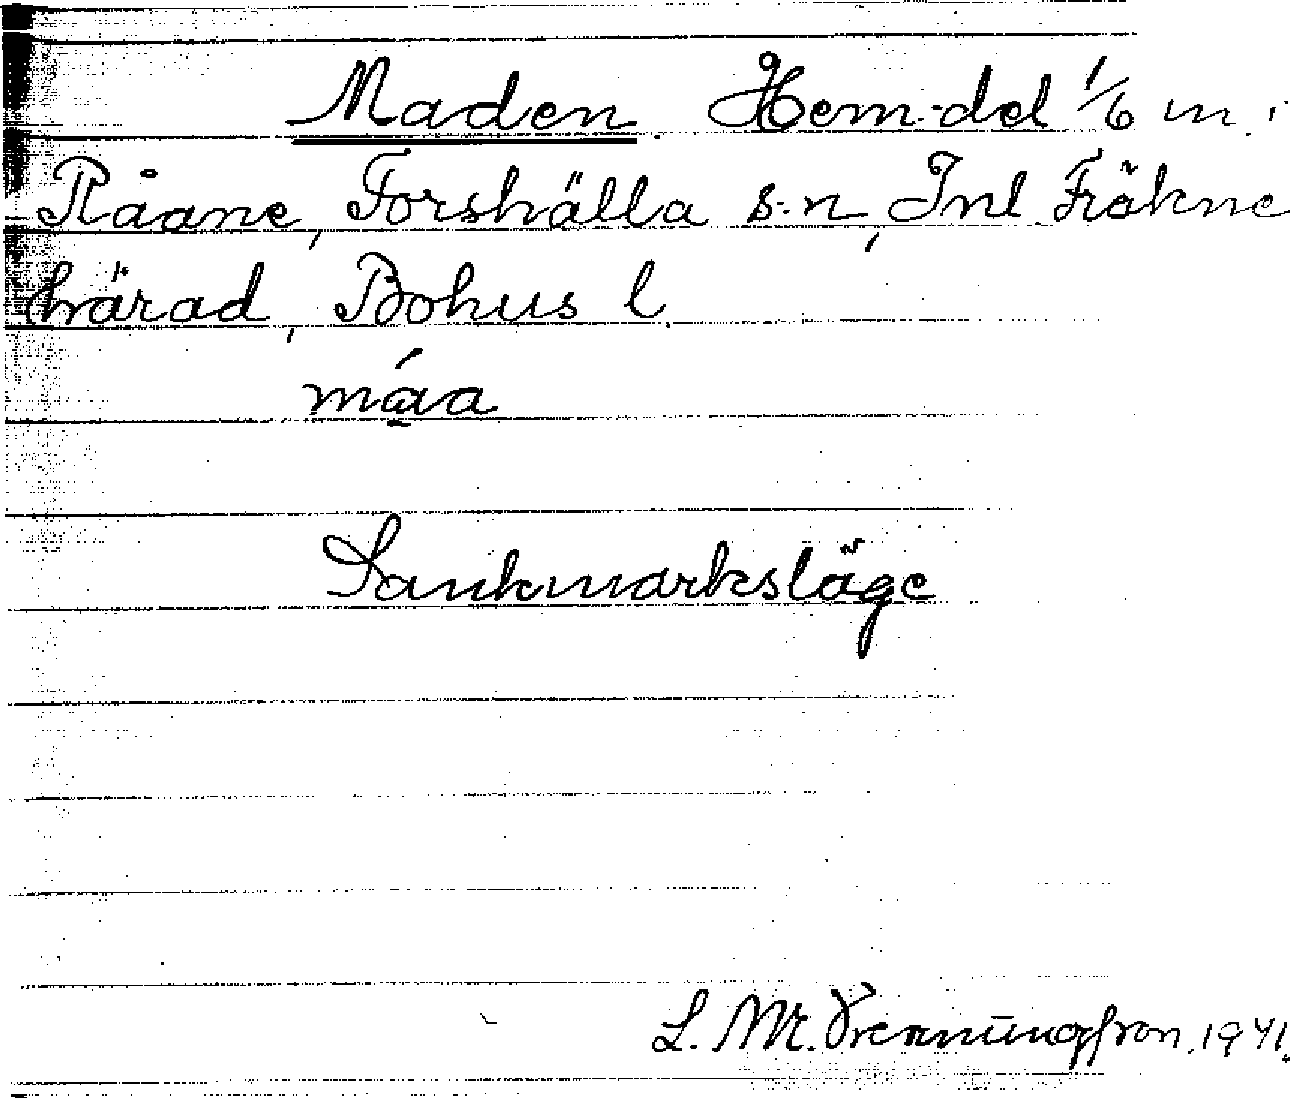 Maden. Hem. del 1/6 m.
Råane, Forshälla s.n, Inl. Fräkne
härad, Bohus l.
máa
Sankmarksläge
L. M. 1941.